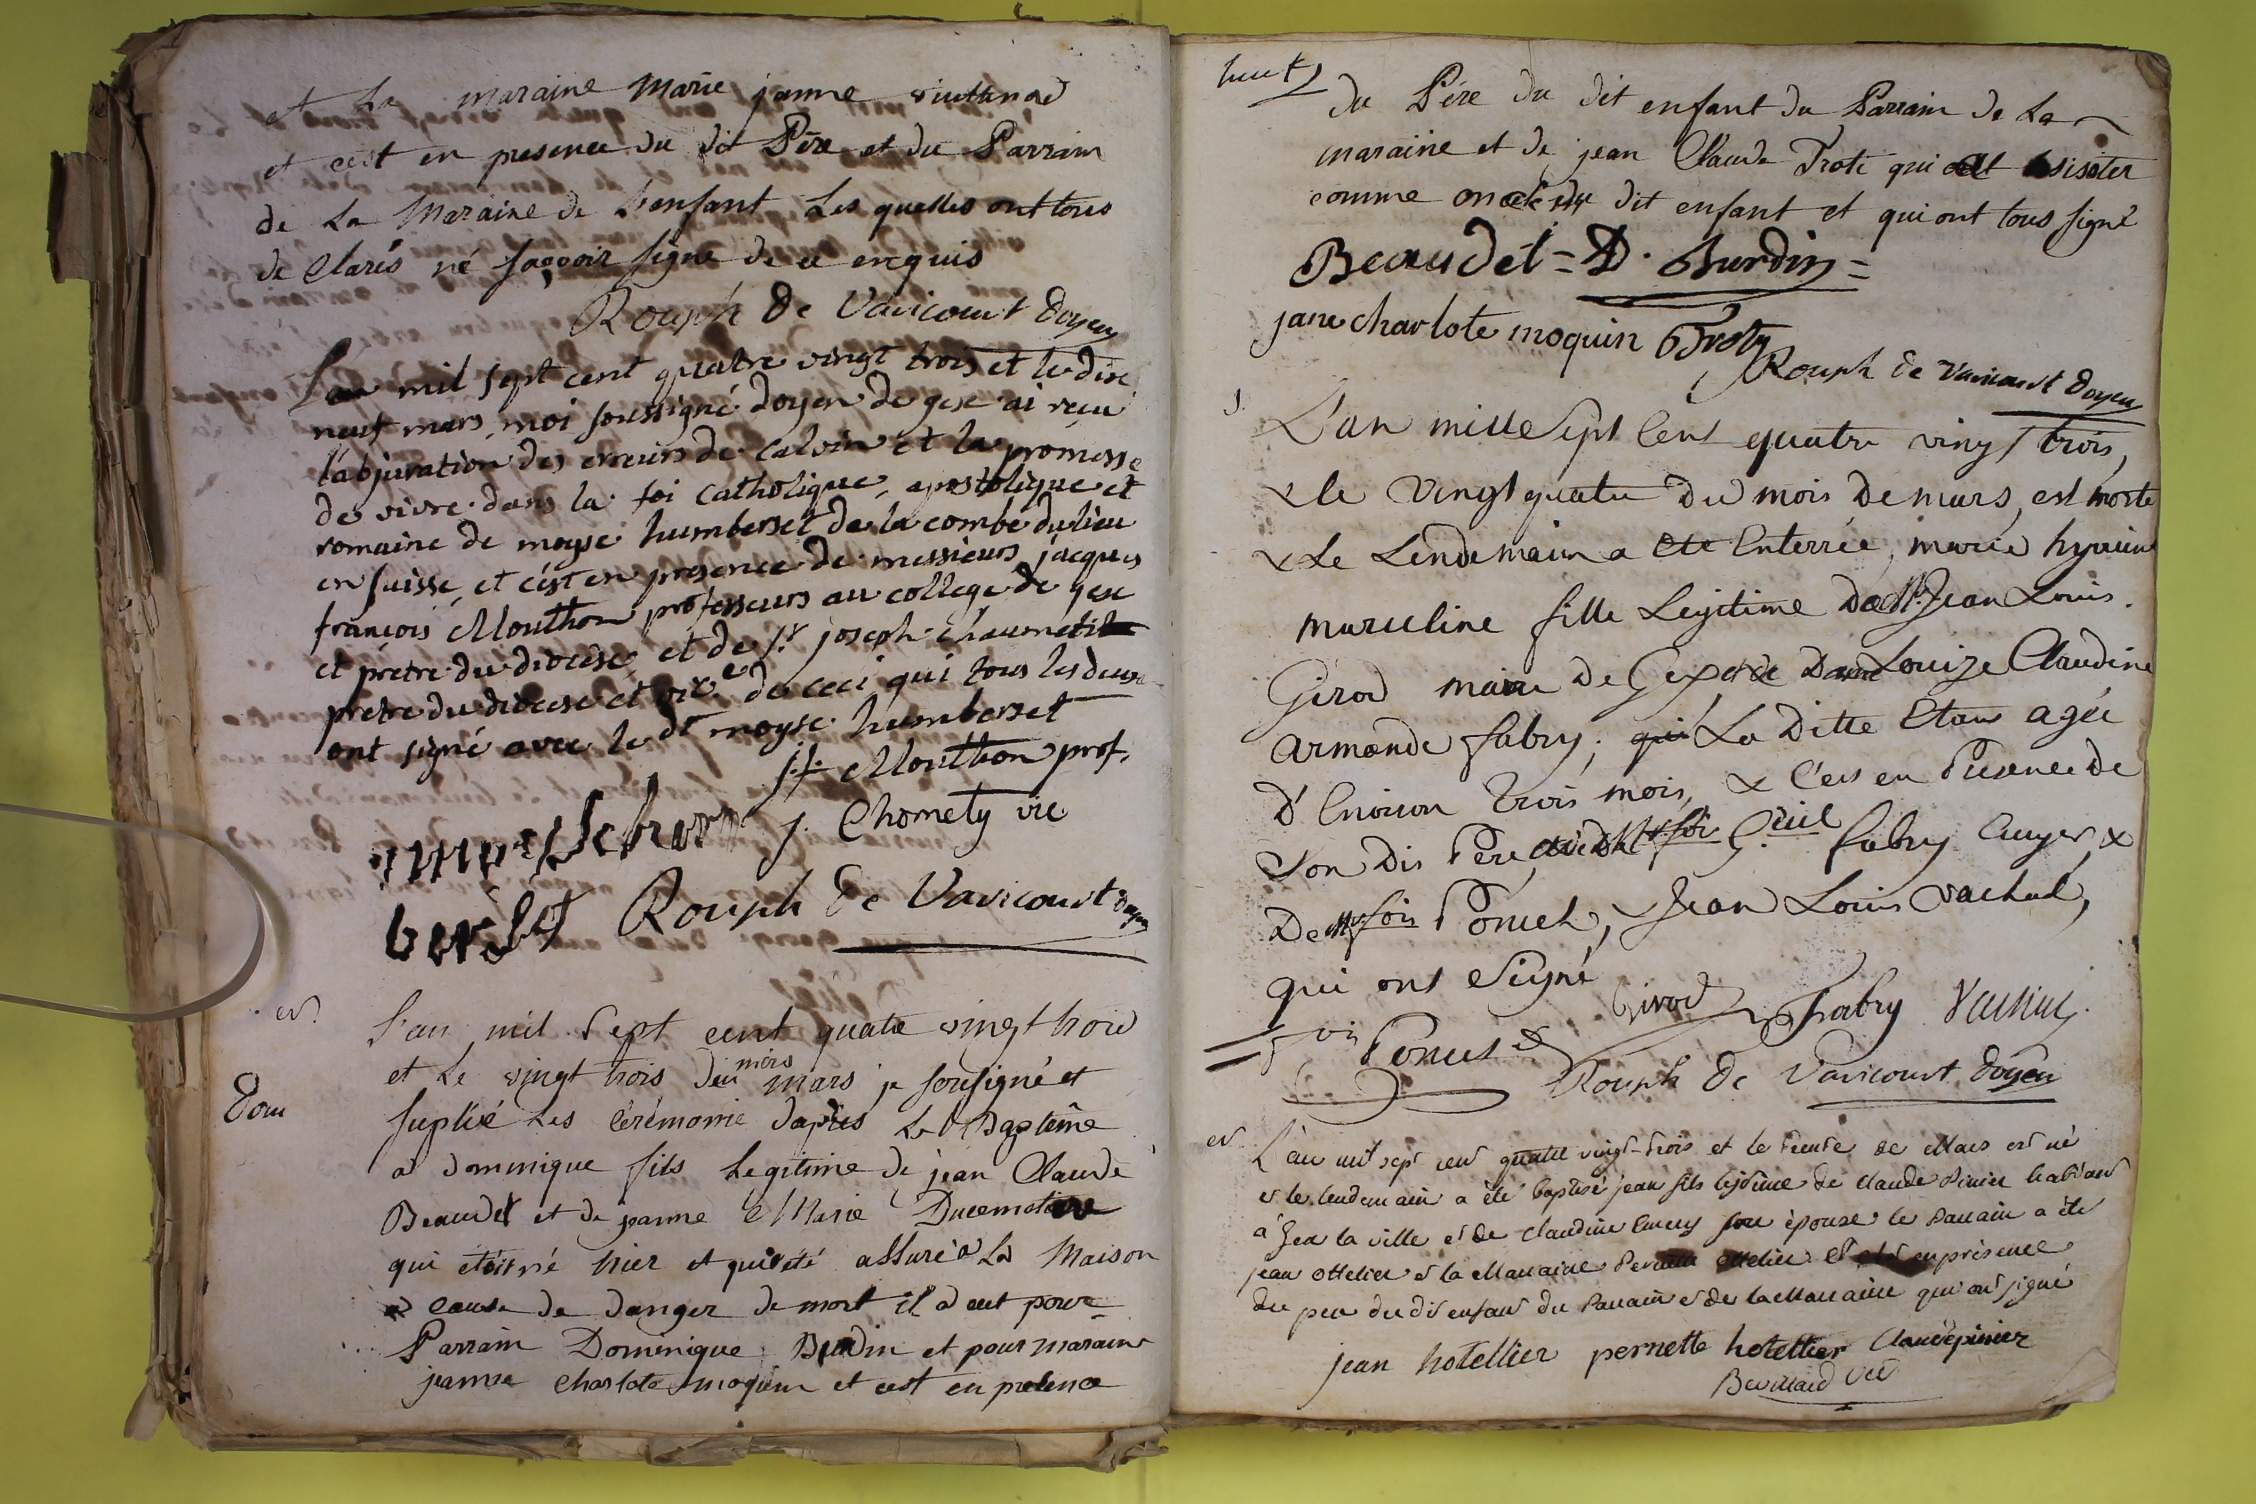 et La maraine Marie janne
et cest en presence du dit Père et du Parrain
de La Maraine de L'enfant Les quelles ont tous
de Clarés né saçvoir signe de ce enquis
Rouph de Varicourt doyen
L'an mil sept cent quatre vingt trois et le dix
neuf mars, moi soussigné doyen de gex ai reçu
l'abjuration des erreurs de Calvin et la promesse
de vivre dans la foi Catholique, apostolique et
romaine de moyse humberset de la combe du lieu
en suisse, et c'est en presence de messieurs jacques
françois Mouthon professeurs au college de gex
et pretre du diocèse, et de sr joseph chaumeti
pretre du diocese et vice de ceci qui tous les deux
ont signé avec le dt moyse humberset
j. f. Mouthon prof.
j. Chomety vic
berset Rouph de Varicourt doyen
L'an mil sept cent quatre vingt trois
et Le vingt trois du mois mars je sousigné et
suplié Les Cérémonie dapres Le Baptême
Dom
a dominique fils Legitime de jean Claude
Beaudet et de janne Marie
qui étoit né hier et qui été assuré a La Maison
a cause de danger de mort il a eut pour
Parrain Dominique Burdin et pour maraine
jeanne Charlote moquin et cest en presence
du Père du dit enfant du Parrain de La
maraine et de jean Claude Troti qui ont asisster
comme oncle du dit enfant et qui ont tous signé
Beaudet = D. Burdin =
jane charlote moquin Troty
Rouph de Varicourt doyen
L'an mille Sept Cent quatre vingt trois,
& le vingt quatre du mois de mars, est morte
& Le Lendemain a été Enterrée, marie
marceline fille Legitime de Mr Jean Louis
Girod maire de Gex et de Dame Louize Claudine
Armande fabry; qui La Ditte Etant agée
D'Environ trois mois, & C'est en Presence de
Son Dit Pere, fabry Ecuyer &
De Mr fois Poncet, & Jean Louis Vachat,
qui ont Signé
Girod Fabry
fois Poncet
Rouph de Varicourt doyen
L'an mil sept cent quatre vingt-trois et le trente de Mars est né
et le lendemain a été baptisé jean fils légitime de Claude Pinier habitant
a Gex la ville et de Claudine son épouse le Parrain a été
jean ottelier et la Marraine Pernette ottelier en présence
du pere du dit enfant du Parrain et de la Marraine qui ont signé
jean hotellier pernette hotellier Claude pinier